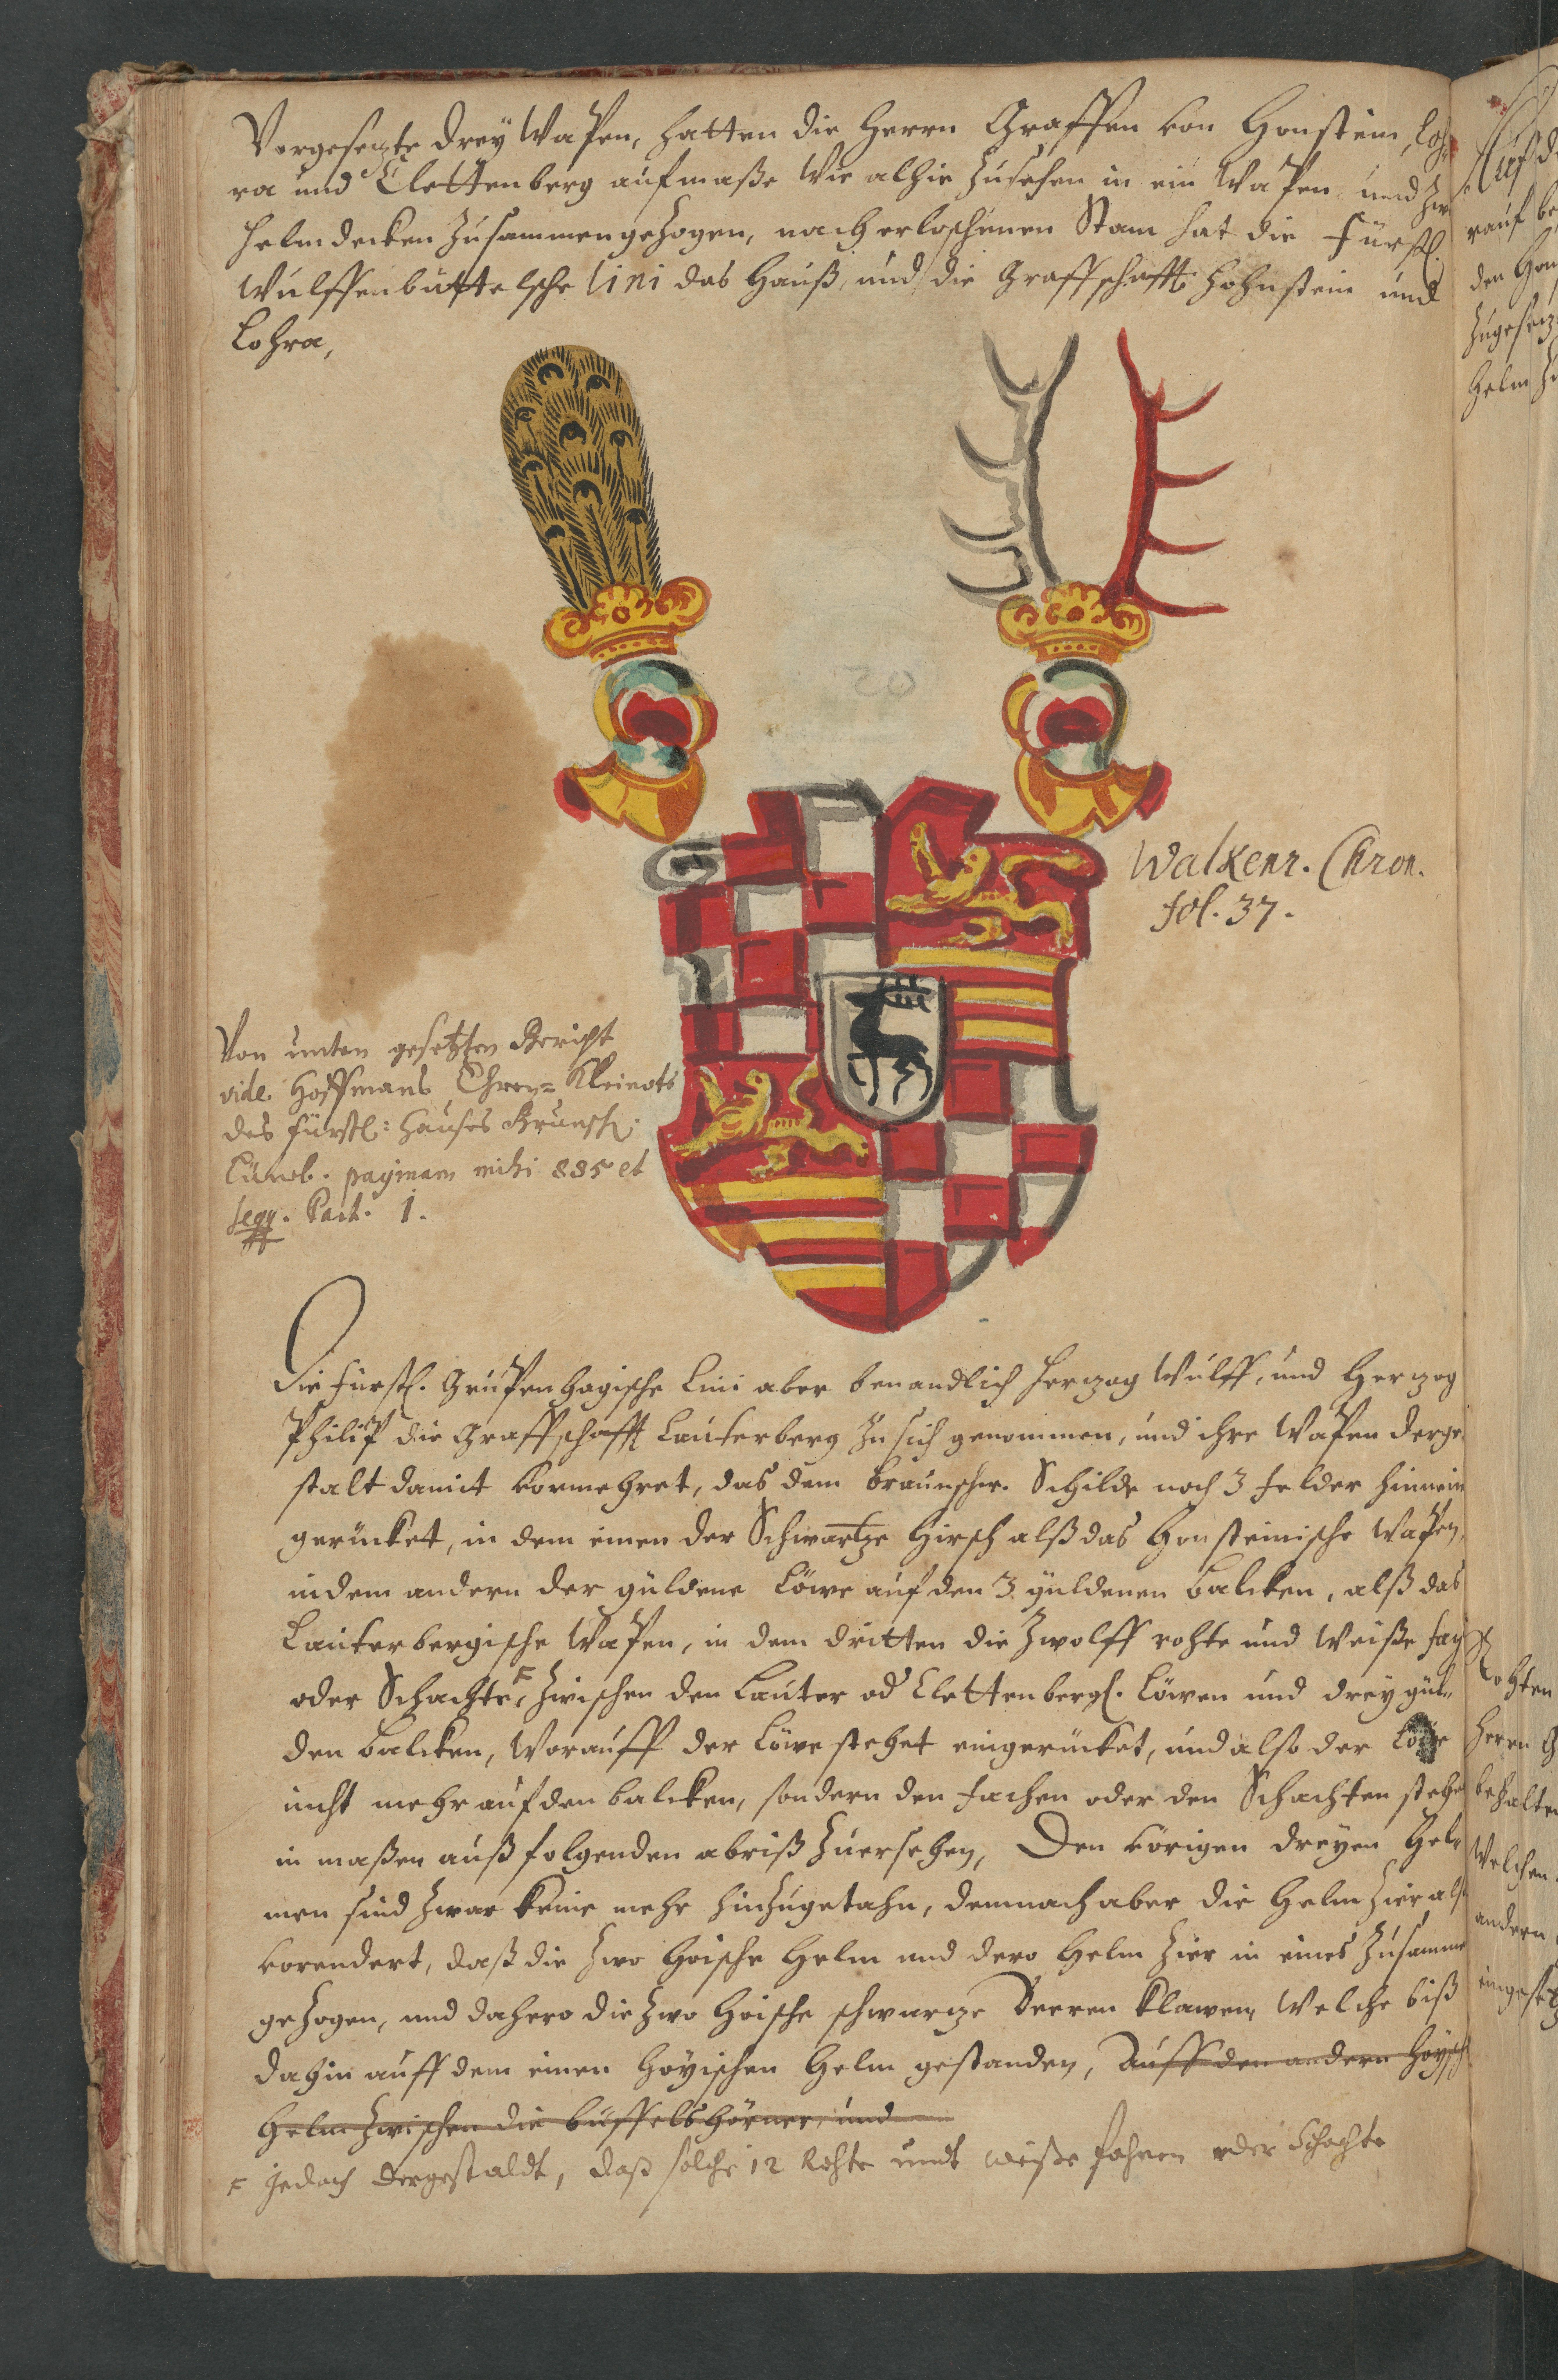 Vorgesetzte drey Wapen, hatten die Herrn Graffen von Honstein, Loh¬
ra und Clettenberg aufmaße wie alhie zusehen in ein Wapen und zwo
Helmdecken zusammengezogen, nach erloschenen Stam hat die Fürstl.
Wulffenbüttelsche lini das Hauß, und die Graffschafft Hohnstein und
Lohra,
Walkenr. Chron.
fol. 37.
Von unten gesetzten Bericht
vide Hoffmans Ehren= Kleinots
des Fürstl: Hauses Brunsch:
Lüneb. paginam mihi 885 et
seqq. Part. 1.
Die Fürstl. Grupenhagische Lini aber benandlich Hertzog Wulff, und Hertzog
Philip die Graffschafft Lauterberg zu sich genommen, und ihre Wapen derge
stalt damit vormehret, das dem Braunschw. Schilde noch 3 Felder hinnein
gerücket, in dem einen der Schwartze Hirsch alß das Honsteinische Wapen,
in dem andern der güldene Löwe auf den 3 güldenen Balcken, alß das
Lauterbergische Wapen, in dem dritten die Zwolff rohte und weiße fach
oder Schachte, zwischen den Lauter od Clettenbergs. Löwen und drey gül¬
den Balcken, worauff der Löwe stehet eingerücket, und also der Löwe
nicht mehr auf den Balcken, sondern den Fachen oder den Schachten stehe
in maßen auß folgenden abriß zuersehen, Den vörigen dreyen Hel¬
men sind zwar keine mehr hinzugetahn, demnach aber die Helmzier also
vorendert, daß die zwo Hoische Helm und dero Helm Zier in eines zusamme
gezogen, und dahero die zwo Hoische schwartze Beeren Klawen, welche biß
dahin auff dem einen Hoyischen Helm gestanden, Auff den andern Hoysch
Helm zwischen die Buffelshörner, und
F jedoch dergestaldt, daß solche 12 Rohte undt weiße fahnen oder Schachte